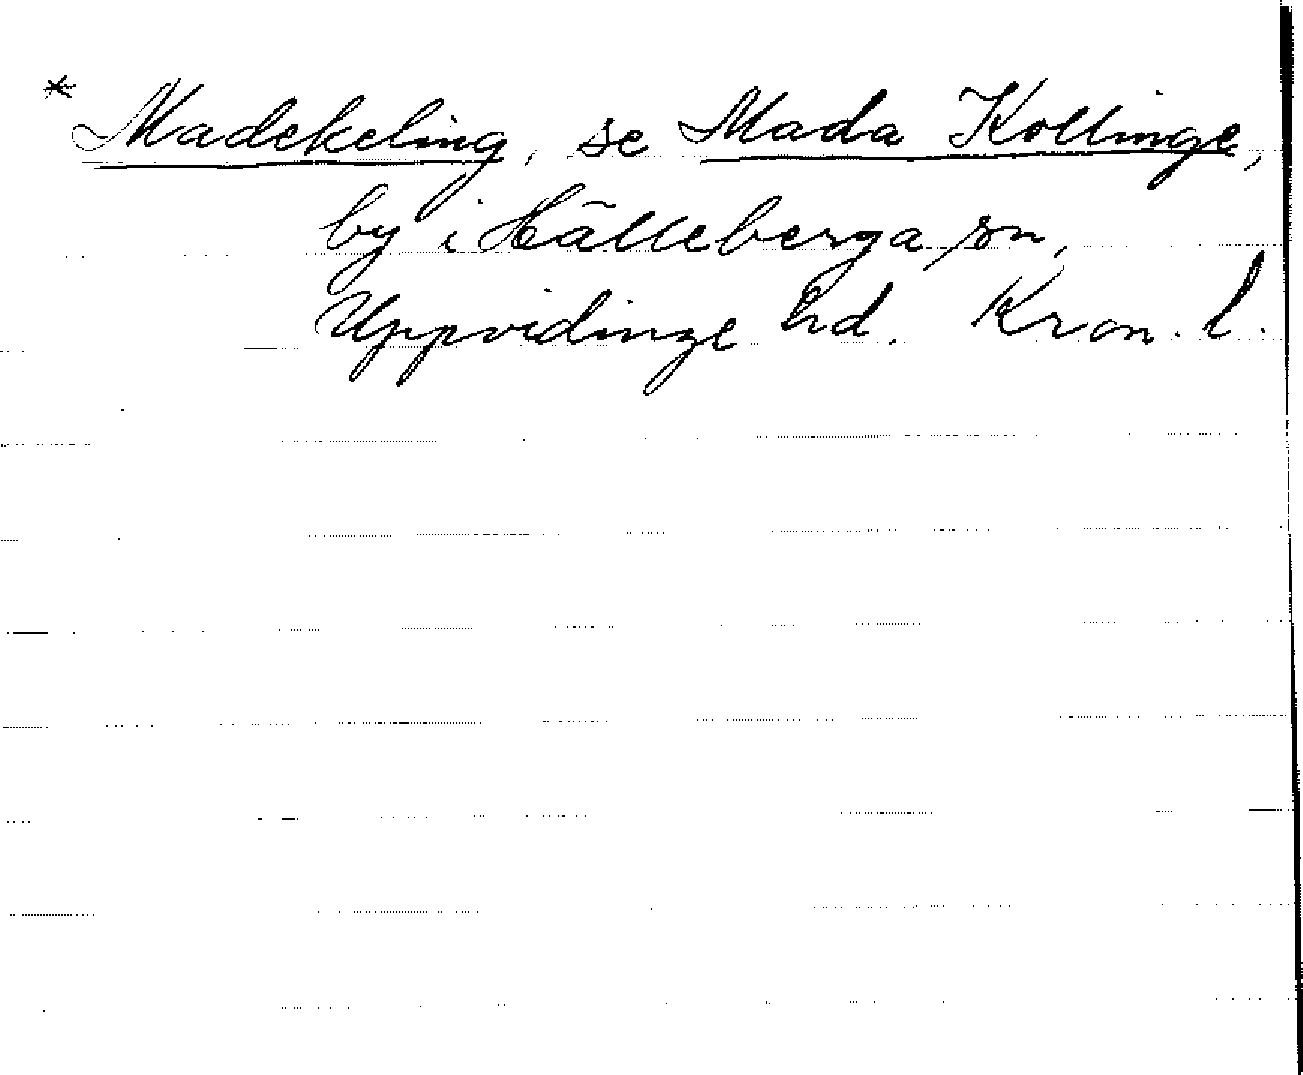 * Madekeling, se Mada Kollinge,
by i Hälleberga sn,
Uppvidinge hd. Kron. l.